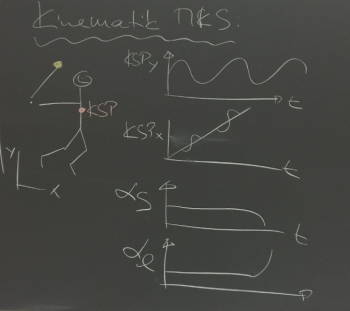 Kinematik MKS.
KSPy
t
KSP
KSPx
y
x
t
αS
t
αe